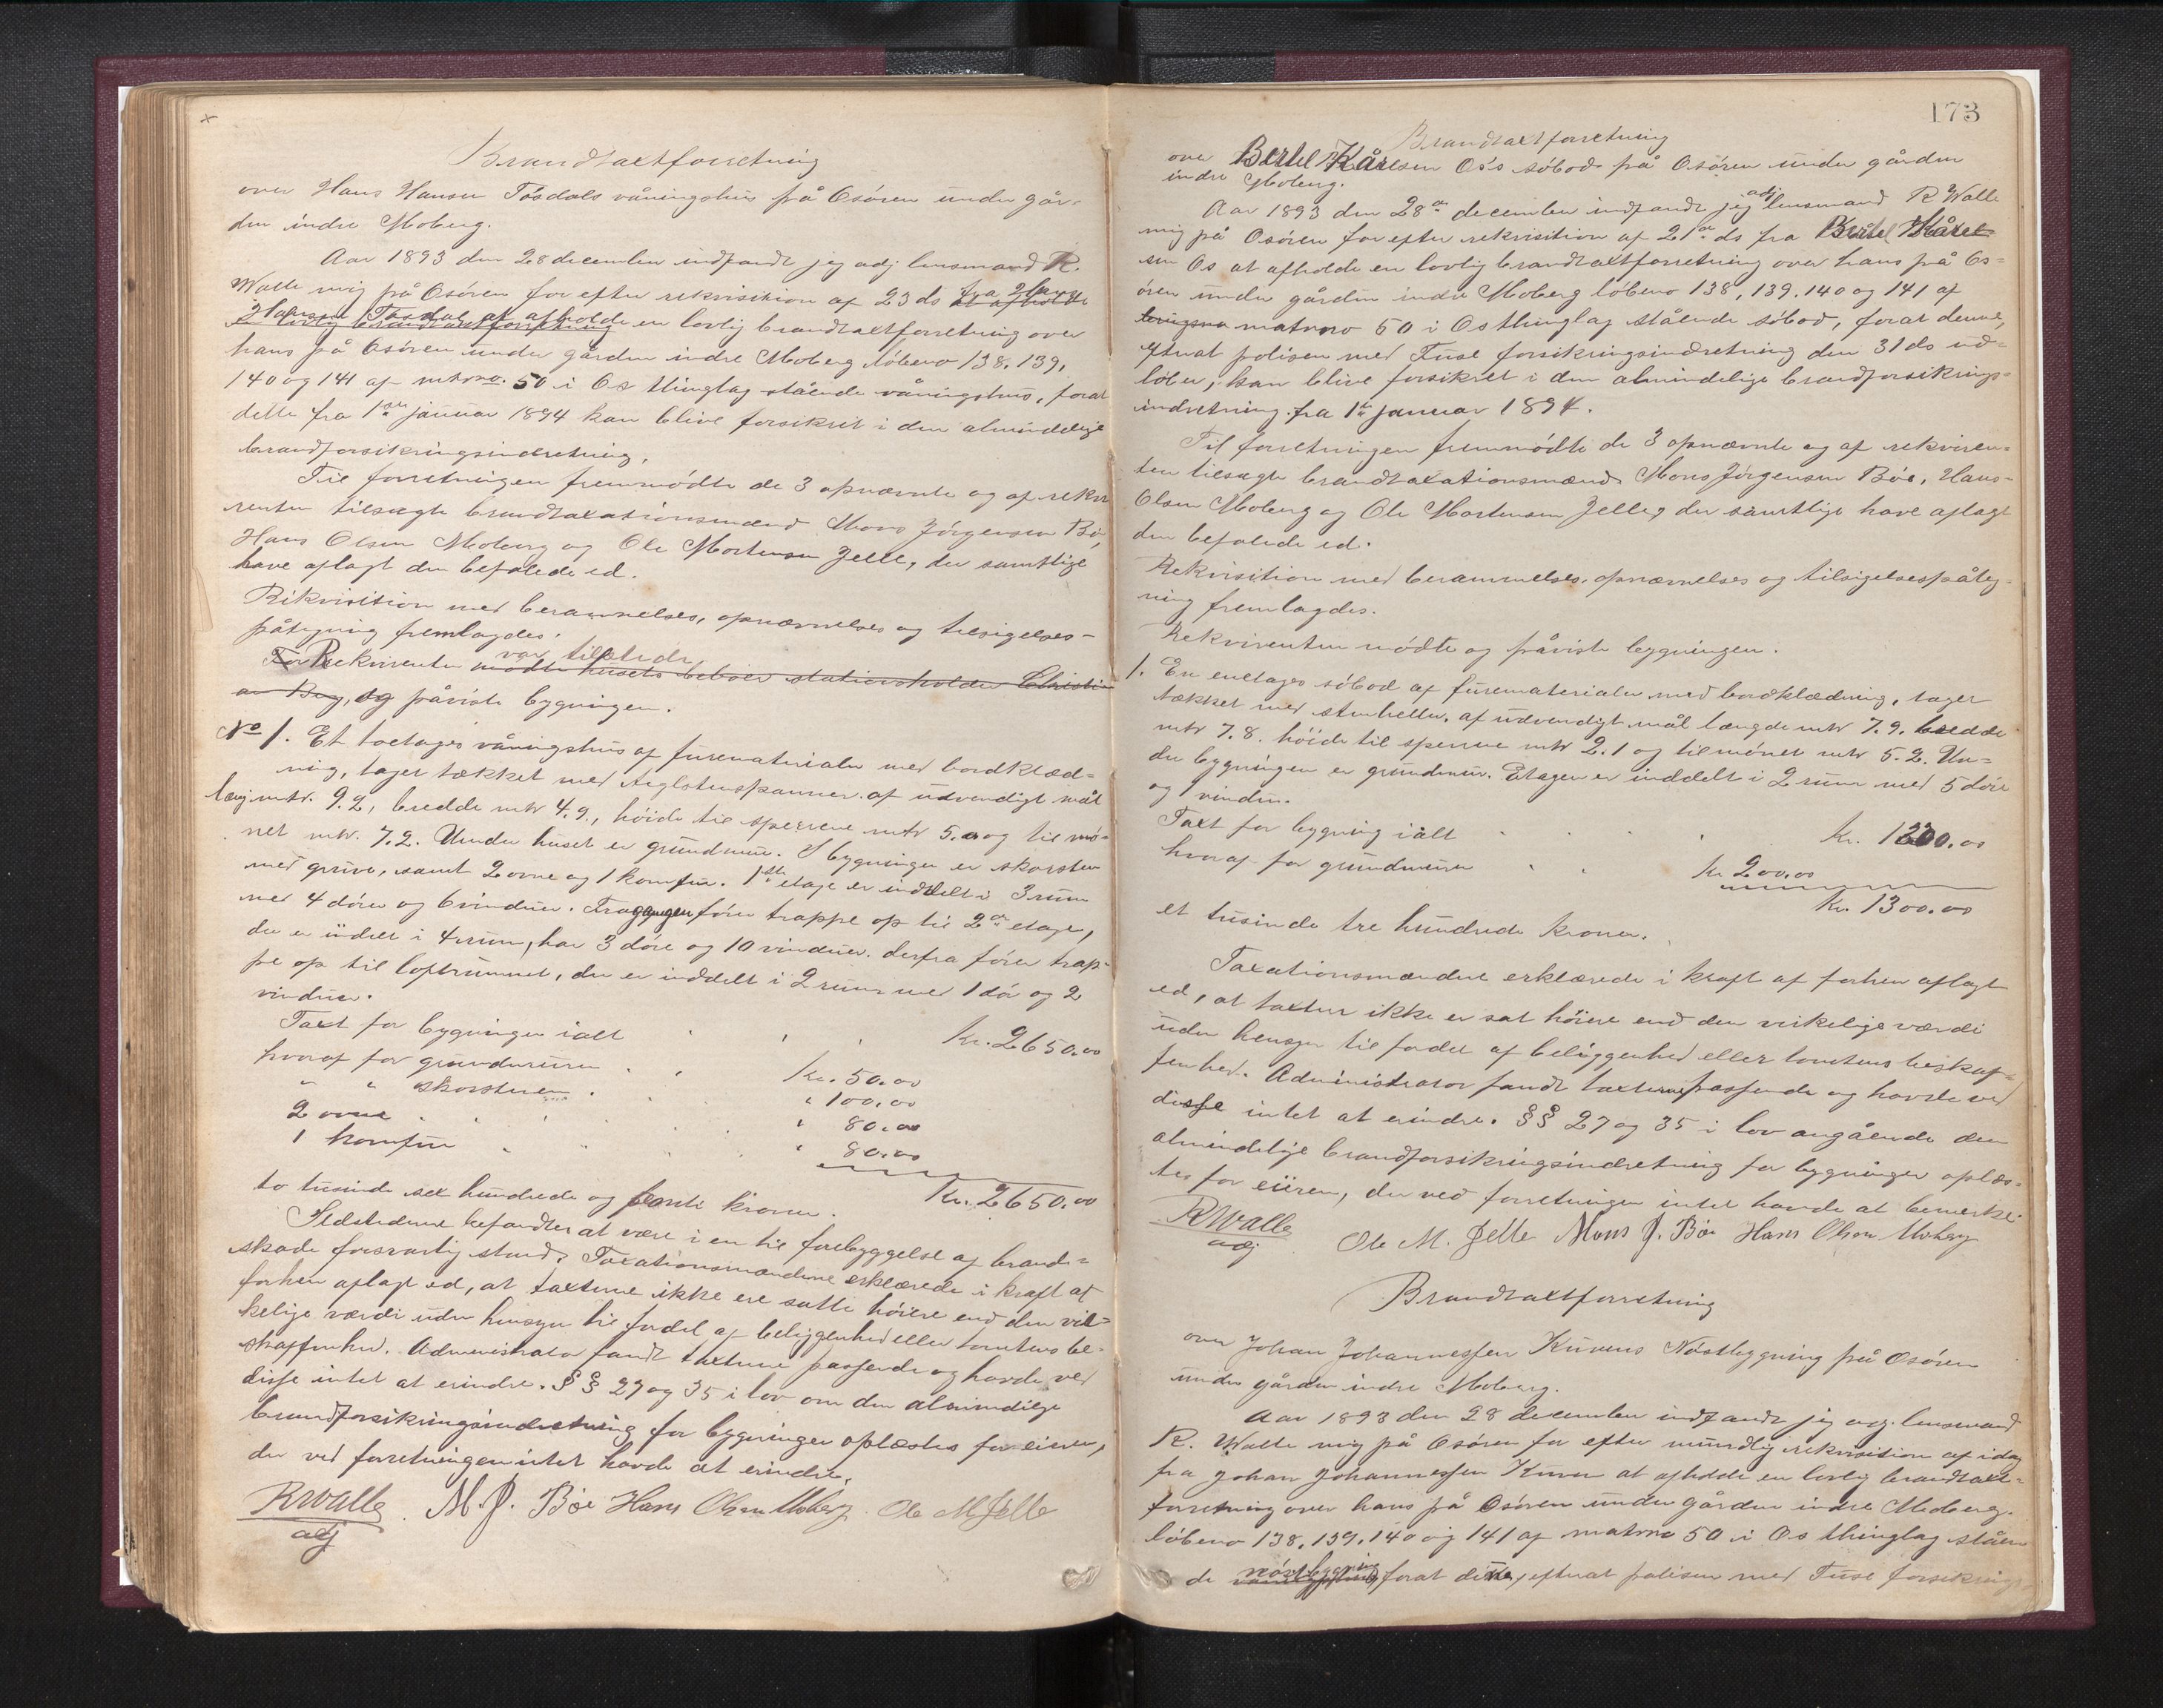 Brandtaxtforretning
over Hans Hansen Tøsdals våningshus på Osøren under går-
den indre Moberg.
Aar 1893 den 28 december indfandt jeg adj lensmand R.
Walle mig på Osøren for efter rekvisition af 23 ds fra Hans
Hansen Tøsdal at afholde en lovlig brandtaxtforretning over
hans på Osøren under gården indre Moberg løbeno 138, 139,
140 og 141 af matrno. 50 i Os thinglag stående våningshus, forat
dette fra 1ste januar 1894 kan blive forsikret i den almindelige
brandforsikringsindretning.
Til forretningen fremmødte de 3 opnævnte og af rekvi
renten tilsagte brandtaxationsmænd Mons Jørgensen Bø,
Hans Olsen Moberg og Ole Mortensen Jelle, der samtlige
have aflagt den befalede ed.
Rikvisition med berammelses, opnævnelses og tilsigelses-
påtegning fremlagdes.
For Rekvirenten var tilstede
mødte husets beboer stationsholder Christi
an Bøg, og påviste bygningen.
No 1. Et toetages våningshus af furematerialer med bordklæd-
ning, taget tækket med teglstenspanner. af udvendigt mål
læng. mtr. 9.2, bredde mtr 4.9., høide til sperrene mtr 5.0 og til mø-
net mtr. 7.2. Under huset er grundmur. I bygningen er skorsten
med gruve, samt 2 ovne og 1 komfur. 1ste etage er inddelt i 3 rum
med 4 døre og 6 vinduer. Fra gangen fører trappe op til 2den etage,
der er inddelt i 4 rum, har 3 døre og 10 vinduer. derfra fører trap-
pe op til loftrummet, der er inddelt i 2 rum med 1 dør og 2
vinduer.
Taxt for bygningen ialt kr. 2650.00
hvoraf for grundmuren kr. 50.00
" " skorstenen " 100.00
2 ovne " 80.00
1 komfur " 80.00
Kr. 2650.00
to tusinde sex hundrede og femti kroner.
Ildstederne befandtes at være i en til forebyggelse af brand-
skade forsvarlig stand. Taxationsmændene erklærede i kraft af
forhen aflagt ed, at taxterne ikke ere satte høiere end den vir-
kelige værdi uden hensyn til fordel af beliggenhed eller tomtens be-
skaffenhed. Administrator fandt taxterne passende og havde ved
disse intet at erindre. § § 27 og 35 i lov om den almindelige
brandforsikringsindretning for bygninger oplæstes for eieren,
der ved forretningen intet havde at erindre.
RWalle M. J. Bøe Hans Olsen Moberg. Ole M Jelle
adj
173
Brandtaxtforretning
over Bertel Kårlsen Os's søbod på Osøren under gården
indre Moberg.
Aar 1893 den 28de december indfandt jeg adj lensmand R Walle
mig på Osøren for efter rekvisition af 21de ds fra Bertel Kårel
sen Os at afholde en lovlig brandtaxtforretning over hans på Os-
øren under gården indre Moberg løbeno 138, 139. 140 og 141 af
matrno 50 i Osthinglag stående søbod, forat denne,
efterat polisen med Fuse forsikringsindretning den 31 ds ud-
løber, kan blive forsikret i den almindelige brandforsikrings-
indretning fra 1ste januar 1894.
Til forretningen fremmødte de 3 opnævnte og af rekviren-
ten tilsagte brandtaxationsmænd Mons Jørgensen Bøe, Hans
Olsen Moberg og Ole Mortensen Jelle, der samtlige have aflagt
den befalede ed.
Rekvisition med berammelses, opnævnelses og tilsigelsespåteg-
ning fremlagdes.
Rekvirenten mødte og påviste bygningen.
1. En enetages søbod af furematerialer med bordklædning, taget
tækket med stenheller, af udvendigt mål længde mtr 7.9. bredde
mtr 7.8. høide til sperrene mtr 2.1 og til mønet mtr 5.2. Un-
der bygningen er grundmur. Etagen er inddelt i 2 rum med 5 døre
og 1 vindu.
Taxt for bygning ialt kr. 1300.00
hvoraf for grundmuren kr 200.00
Kr. 1300.00
et tusinde tre hundrede kroner.
Taxationsmændene erklærede i kraft af forhen aflagt
ed, at taxten ikke er sat høiere end den virkelige værdi
uden hensyn til fordel af beliggenhed eller tomtens beskaf-
fenhed. Administrator fandt taxterne passende og havde ved
disse intet at erindre. § § 27 og 35 i lov angående den
almindelige brandforsikringsindretning for bygninger oplæs-
tes for eieren, der ved forretningen intet havde at bemerke.
RWalle Ole M. Jelle Mons J. Bøe Hans Olsen Moberg
adj
Brandtaxtforretning
over Johan Johannessen Kuvens Nøstbygning på Osøren
under gården indre Moberg.
Aar 1893 den 28 december indfandt jeg adj. lensmand
R. Walle mig på Osøren for efter mundlig rekvisition af idag
fra Johan Johannessen Kuven at afholde en lovlig brandtaxt-
forretning over hans på Osøren under gården indre Moberg.
løbeno 138, 139, 140 og 141 af matrno 50 i Os thinglag ståen
de nøstbygning forat denne, efterat polisen med Fuse forsikrings